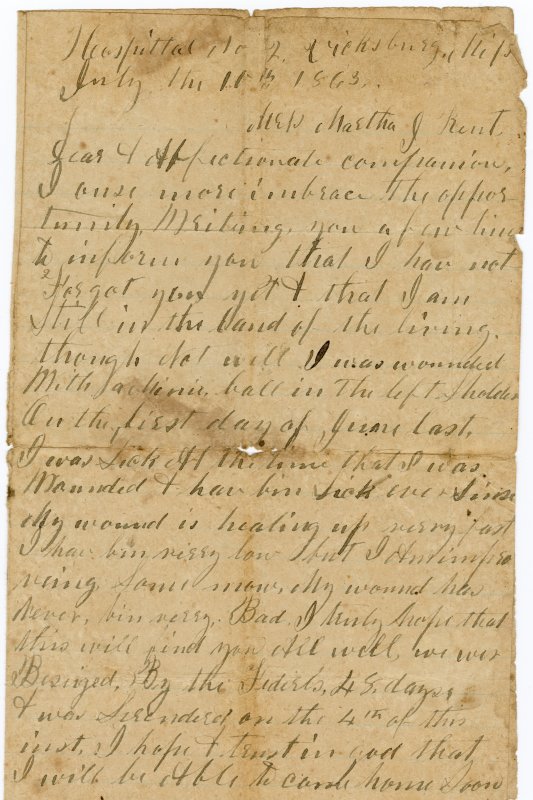 Hospittal No 2, Vicksburg, Miss
July the 10th 1863.
Mrs Martha J Kent
Dear & Affectionate companion,
I onse more imbrace the oppor-
tunity Writing, you a few lines
to inform you that I hav not
Forgot you yet & that I am
Still in the land of the living.
though Not well I was wounded
With a Minie, ball in the left Sholder
On the, first day of June last.
I was Sick At the time that I was
Wounded & hav bin Sick ever Sinse
My wound is healing up verry fast
I hav bin verry low but I Am impro
ving Some now, My wound has
Never, bin verry, Bad, I truly hope that
this will find you All well, we wer
Beseiged, By the Federls, 48, days,
& was Serenderd, on the 4th of this
inst, I hope & trust in god that
I will be Able to come home Soon